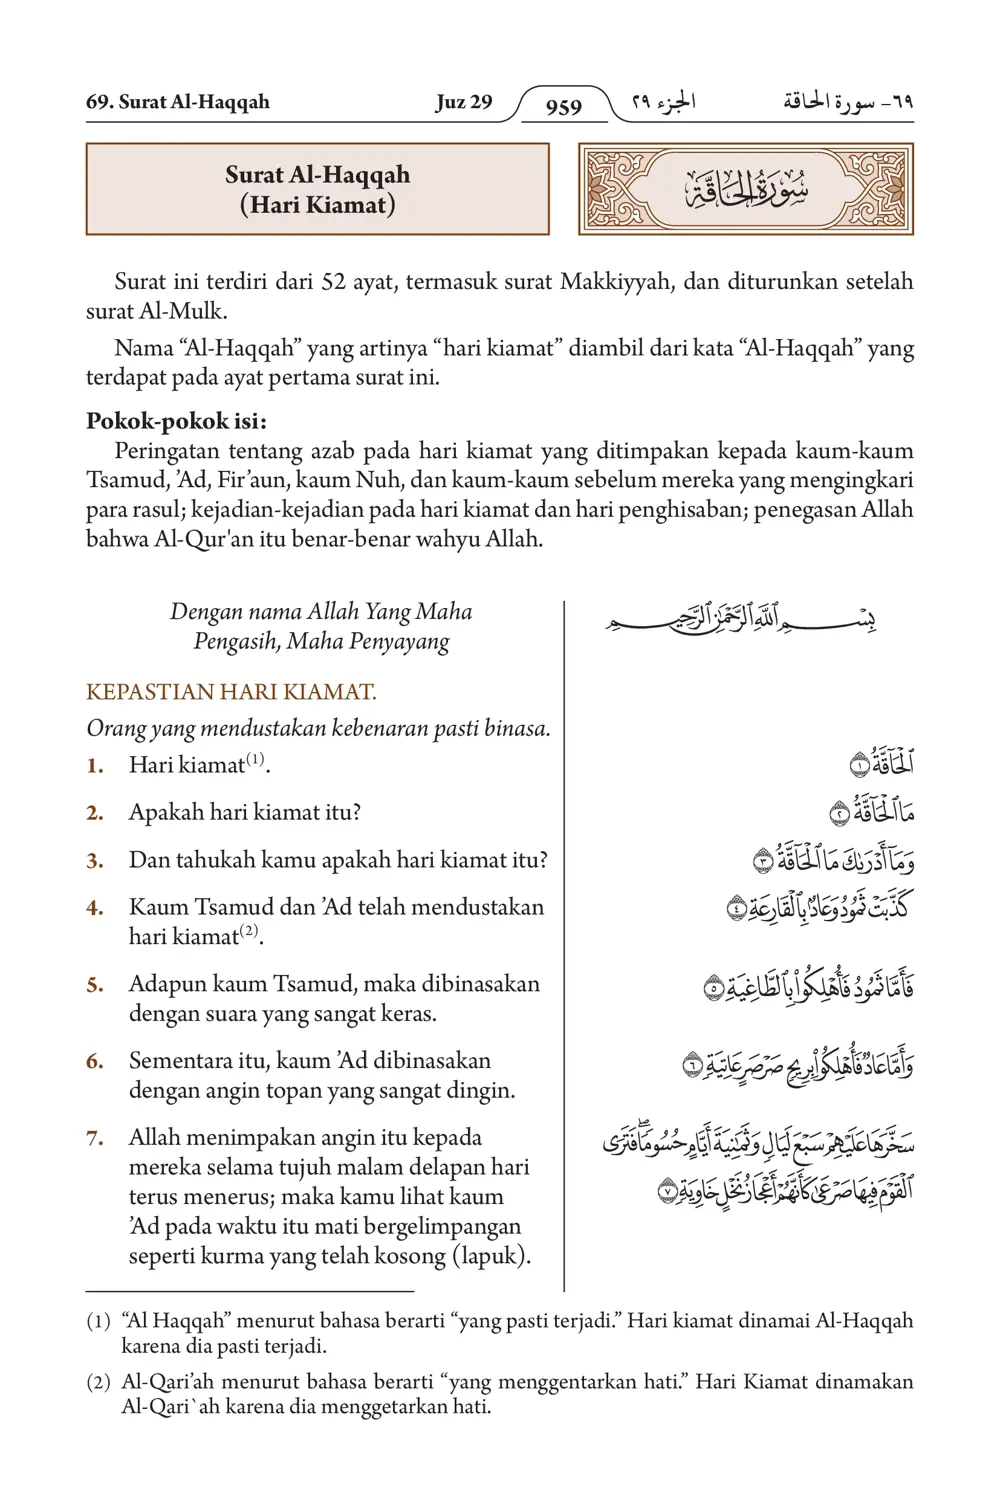 69. Surat Al-Haqqah Juz 29 959 الجزء ٢٩ ٦٩- سورة الحاقة
Surat Al-Haqqah
(Hari Kiamat)
سُورَةُ الحَاقَّةِ
Surat ini terdiri dari 52 ayat, termasuk surat Makkiyyah, dan diturunkan setelah
surat Al-Mulk.
Nama “Al-Haqqah” yang artinya “hari kiamat” diambil dari kata “Al-Haqqah” yang
terdapat pada ayat pertama surat ini.
Pokok-pokok isi:
Peringatan tentang azab pada hari kiamat yang ditimpakan kepada kaum-kaum
Tsamud, ’Ad, Fir’aun, kaum Nuh, dan kaum-kaum sebelum mereka yang mengingkari
para rasul; kejadian-kejadian pada hari kiamat dan hari penghisaban; penegasan Allah
bahwa Al-Qur'an itu benar-benar wahyu Allah.
Dengan nama Allah Yang Maha
Pengasih, Maha Penyayang
KEPASTIAN HARI KIAMAT.
Orang yang mendustakan kebenaran pasti binasa.
1. Hari kiamat(1).
2. Apakah hari kiamat itu?
3. Dan tahukah kamu apakah hari kiamat itu?
4. Kaum Tsamud dan ’Ad telah mendustakan
hari kiamat(2).
5. Adapun kaum Tsamud, maka dibinasakan
dengan suara yang sangat keras.
6. Sementara itu, kaum ’Ad dibinasakan
dengan angin topan yang sangat dingin.
7. Allah menimpakan angin itu kepada
mereka selama tujuh malam delapan hari
terus menerus; maka kamu lihat kaum
’Ad pada waktu itu mati bergelimpangan
seperti kurma yang telah kosong (lapuk).
بِسْمِ ٱللَّهِ ٱلرَّحْمَٰنِ ٱلرَّحِيمِ
ٱلْحَآقَّةُ ١
مَا ٱلْحَآقَّةُ ٢
وَمَآ أَدْرَىٰكَ مَا ٱلْحَآقَّةُ ٣
كَذَّبَتْ ثَمُودُ وَعَادٌۢ بِٱلْقَارِعَةِ ٤
فَأَمَّا ثَمُودُ فَأُهْلِكُوا۟ بِٱلطَّاغِيَةِ ٥
وَأَمَّا عَادٌ فَأُهْلِكُوا۟ بِرِيحٍ صَرْصَرٍ عَاتِيَةٍ ٦
سَخَّرَهَا عَلَيْهِمْ سَبْعَ لَيَالٍ وَثَمَٰنِيَةَ أَيَّامٍ حُسُومًاۖ فَتَرَى
ٱلْقَوْمَ فِيهَا صَرْعَىٰ كَأَنَّهُمْ أَعْجَازُ نَخْلٍ خَاوِيَةٍ ٧
(1) “Al Haqqah” menurut bahasa berarti “yang pasti terjadi.” Hari kiamat dinamai Al-Haqqah
karena dia pasti terjadi.
(2) Al-Qari’ah menurut bahasa berarti “yang menggentarkan hati.” Hari Kiamat dinamakan
Al-Qari`ah karena dia menggetarkan hati.